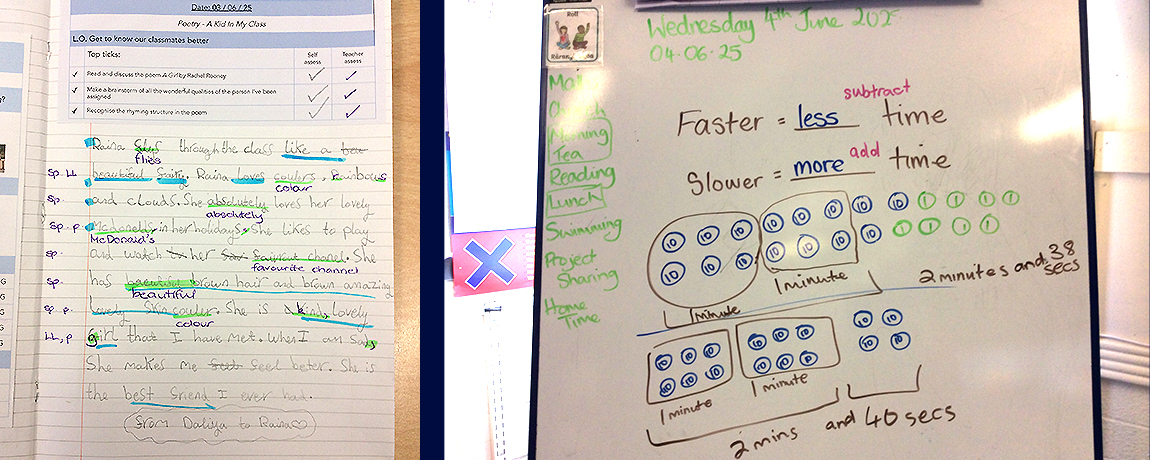 Date: 03 / 06 / 25
Poetry - A Kid In My Class
L.O. Get to know our classmates better
Top ticks:
Self assess
Teacher assess
Read and discuss the poem A Girl by Rachel Rooney
Make a brainstorm of all the wonderful qualities of the person I've been assigned
Recognise the rhyming structure in the poem
Raina through the class like a
flies
sp. LL beautiful Raina loves coulers, Rainbows
colour
sp. and clouds. She absolutely loves her lovely
absolutely
sp. p. Mcdonelds in her holidays. She likes to play
McDonald's
sp. and watch her chanel. She
favourite channel
sp. has brown hair and brown amazing
beautiful
sp. p. lovely Skin couler. She is kind, lovely
colour
LL, p girl that I have met. When I am Sad,
She makes me feel beter. She is
the best friend I ever had.
from Daliya to Raina
Roll
Wednesday 4th June 2025
04.06.25
Morning
Tea
Reading
Lunch
Swimming
Project
Sharing
Home
Time
subtract
Faster = less time
add
Slower = more time
10 10 10 10 10 10 10 10 1 1 1 1
10 10 10 10 10 10 10 1 1 1 1
1 minute
1 minute
2 minutes and 38 secs
10 10 10 10 10 10 10 10
10 10 10 10 10 10 10 10
1 minute
1 minute
2 mins and 40 secs